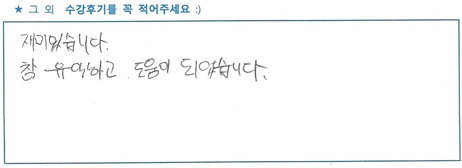 ★ 그 외 수강후기를 꼭 적어주세요 :)
재미있습니다.
참 유익하고 도움이 되었습니다.